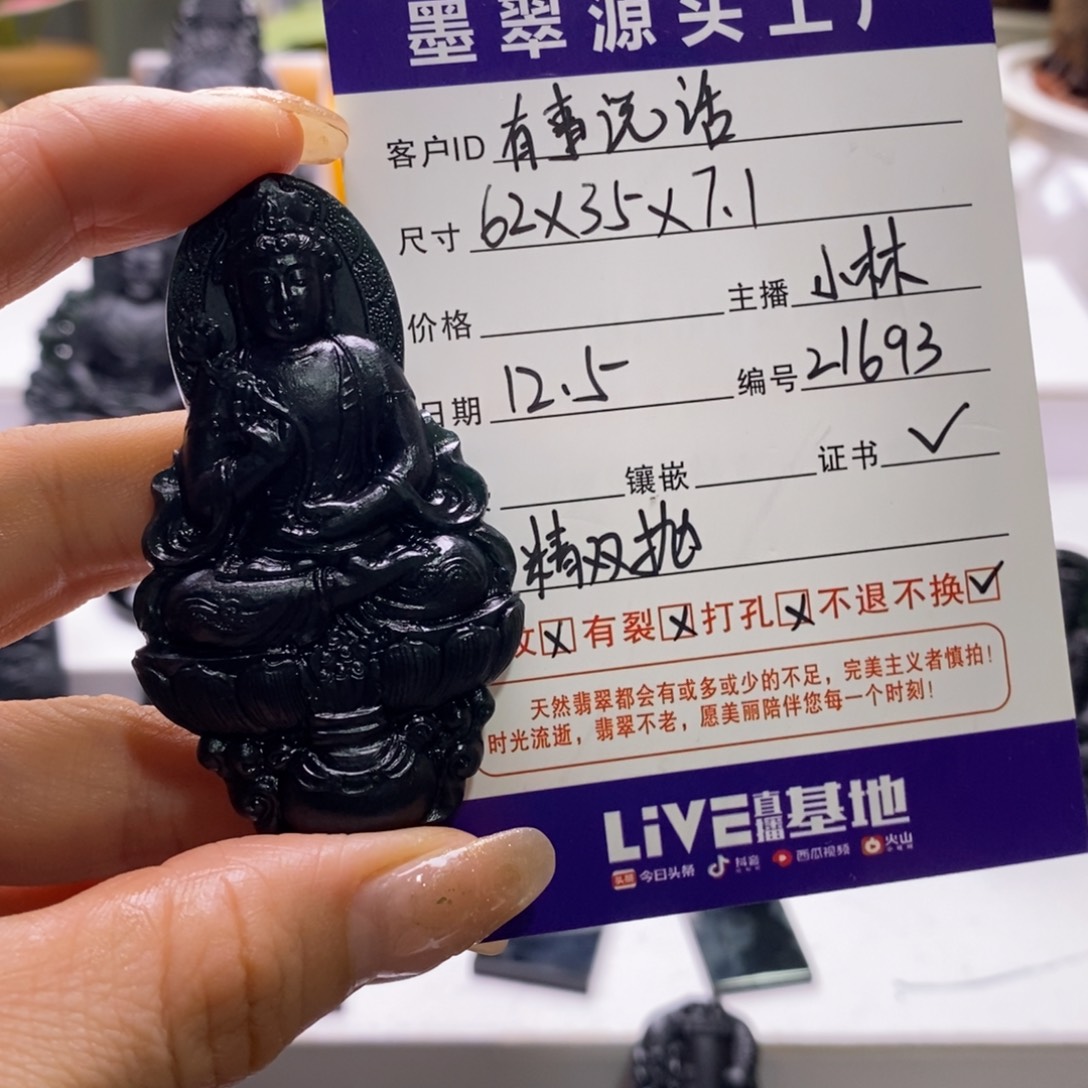 墨翠源头工厂
客户ID 有事说话
尺寸 62X35X7.1
价格 主播 小林
日期 12.5 编号 21693
镶嵌 证书 ✓
精双抛
☒ 有裂☒打孔☒不退不换☑
天然翡翠都会有或多或少的不足，完美主义者慎拍！
时光流逝，翡翠不老，愿美丽陪伴您每一个时刻！
LiVE直播基地
头条 今日头条 抖音 西瓜视频 火山